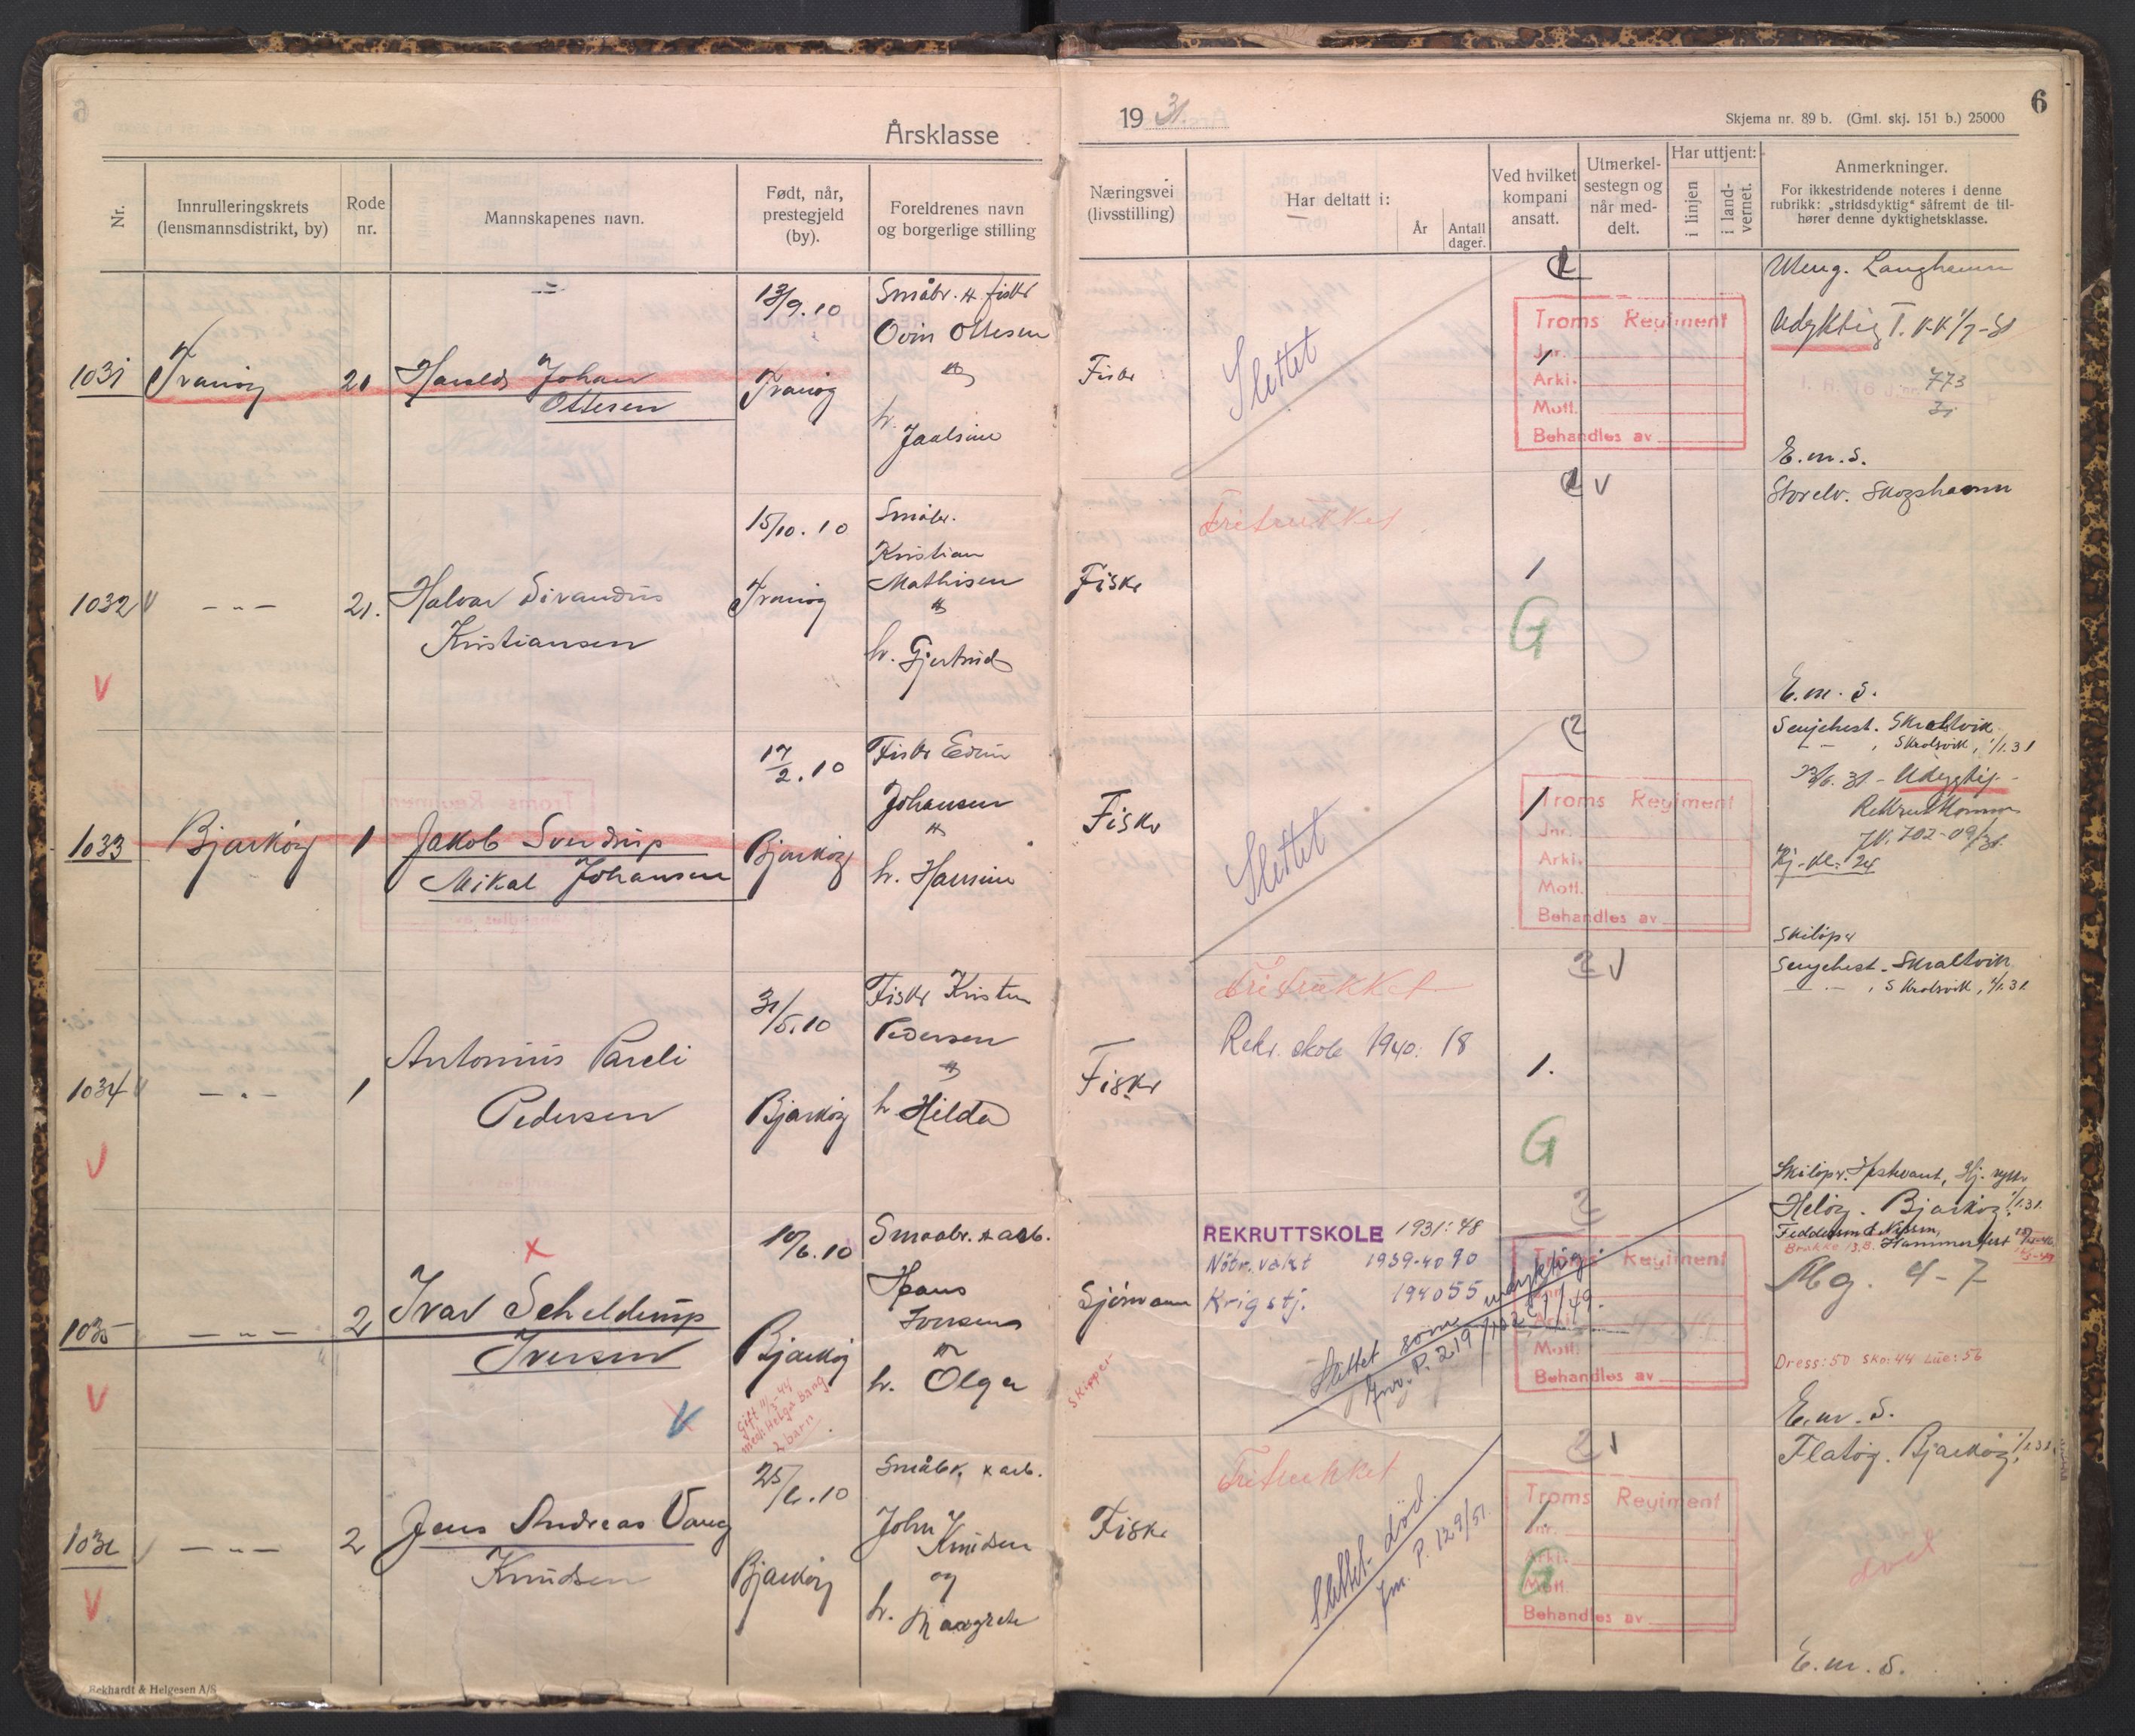 Årsklasse
1931
Skjema nr. 89 b. (Gml. skj. 151 b.) 25000
6
Nr.
Innrulleringskrets
(lensmannsdistrikt, by)
Rode
nr.
Mannskapenes navn.
Født, når,
prestegjeld
(by).
Foreldrenes navn
og borgerlige stilling
Næringsvei
(livsstilling)
Har deltatt i:
År
Antall
dager.
Ved hvilket
kompani
ansatt.
Utmerkel-
sestegn og
når med-
delt.
Har uttjent:
i linjen
i land-
vernet.
Anmerkninger.
For ikkestridende noteres i denne
rubrikk: „stridsdyktig“ såfremt de til-
hører denne dyktighetsklasse.
1031
Tranøy
20
Harald Johan
Ottesen
13/9.10
Tranøy
Småbr. & fisker
Ottesen
h.
Fisker
Slettet
1
Troms Regiment
Jnr.
Arki.
Mott.
Behandles av
Udyktig
773
31
E.m.s.
1032
V
- " -
21.
Halvar
Kristiansen
15/10.10
Tranøy
Småbr.
Kristian
Mathisen
&
h. Gjertrud
Fisker
Fritrukket
V
1
G
Storelv. Skogshamn
E.m.s.
1033
Bjarkøy
1
Jakob Sverdrup
Mikal Johansen
17/2.10
Bjarkøy
Fisker
Johansen
&
h. Hansine
Fisker
Slettet
2
1
Troms Regiment
Jnr.
Arki.
Mott.
Behandles av
Senjehest. Skraltvik
- " - , Skrolsvik, 1/1.31
23/6.31 - Udyktig -
702-09/31.
Hj-kl: 24
Skiløper
1034
V
- " -
1
Antonius Pareli
Pedersen
31/5.10
Bjarkøy
Fisker Kristen
Pedersen
&
h Hilda
Fisker
Fritrukket
Rekr. skole 1940: 18
2 V
1.
G
Senjehest - Skraltvik
- " - , Skrolsvik, 1/1.31
Skiløper.
1035
- " -
2
Ivar Scheldrup
Iversen
10/6.10
Bjarkøy
Gift 11/3-44
med: Helga Bang
2 barn
Smaabr. & arb.
Hans
Iversen
&
h. Olga
Sjømann
Skipper
REKRUTTSKOLE 1931: 48
Nøtr. vakt 1939-40 90
Krigstj. 1940 55
Slettet som udyktig
2
Troms Regiment
Jnr.
Arki.
Mott.
Behandles av
Heløy. Bjarkøy, 1/1.31.
Feddersen & Nissen,
Hammerfest
Mg. 4-7
Dress: 50 Sko: 44 Lue: 56
E.m.s.
V
- " -
2
Jens Andreas Vang
Knudsen
25/6.10
Bjarkøy
Småbr. & arb.
John
Knudsen
og
h.
Margrete
Fisker
Fritrukket
Slettet - død.
P. 129/51.
2 V
1.
G
Troms Regiment
Jnr.
Arki.
Mott.
Behandles av
Flatøy. Bjarkøy, 1/1.31
død
E.m.s.
Rekhardt & Helgesen A/S